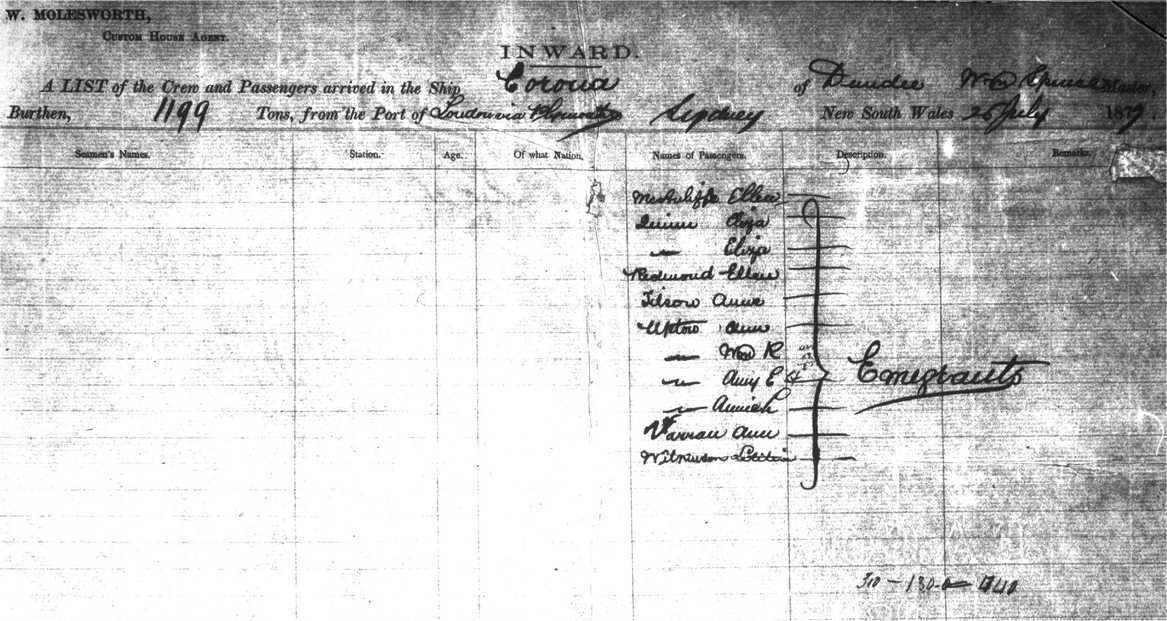 W. MOLESWORTH,
CUSTOM HOUSE AGENT.
INWARD.
A LIST of the Crew and Passengers arrived in the Ship Corona of Dundee Master,
Burthen, 1199 Tons, from the Port of London via Plymouth Sydney New South Wales 25 July 1877.
Seamen's Names. Station. Age. Of what Nation. Names of Passengers. Description. Remarks.
McAuliffe Ellen
Quinn Eliza
" Eliza
Redmond Ellen
Tilson Anne
Upton Ann
" Wm R
" Amy E
" Annie L
Varran Ann
Wilkinson Letitia
Emigrants
310 - 130